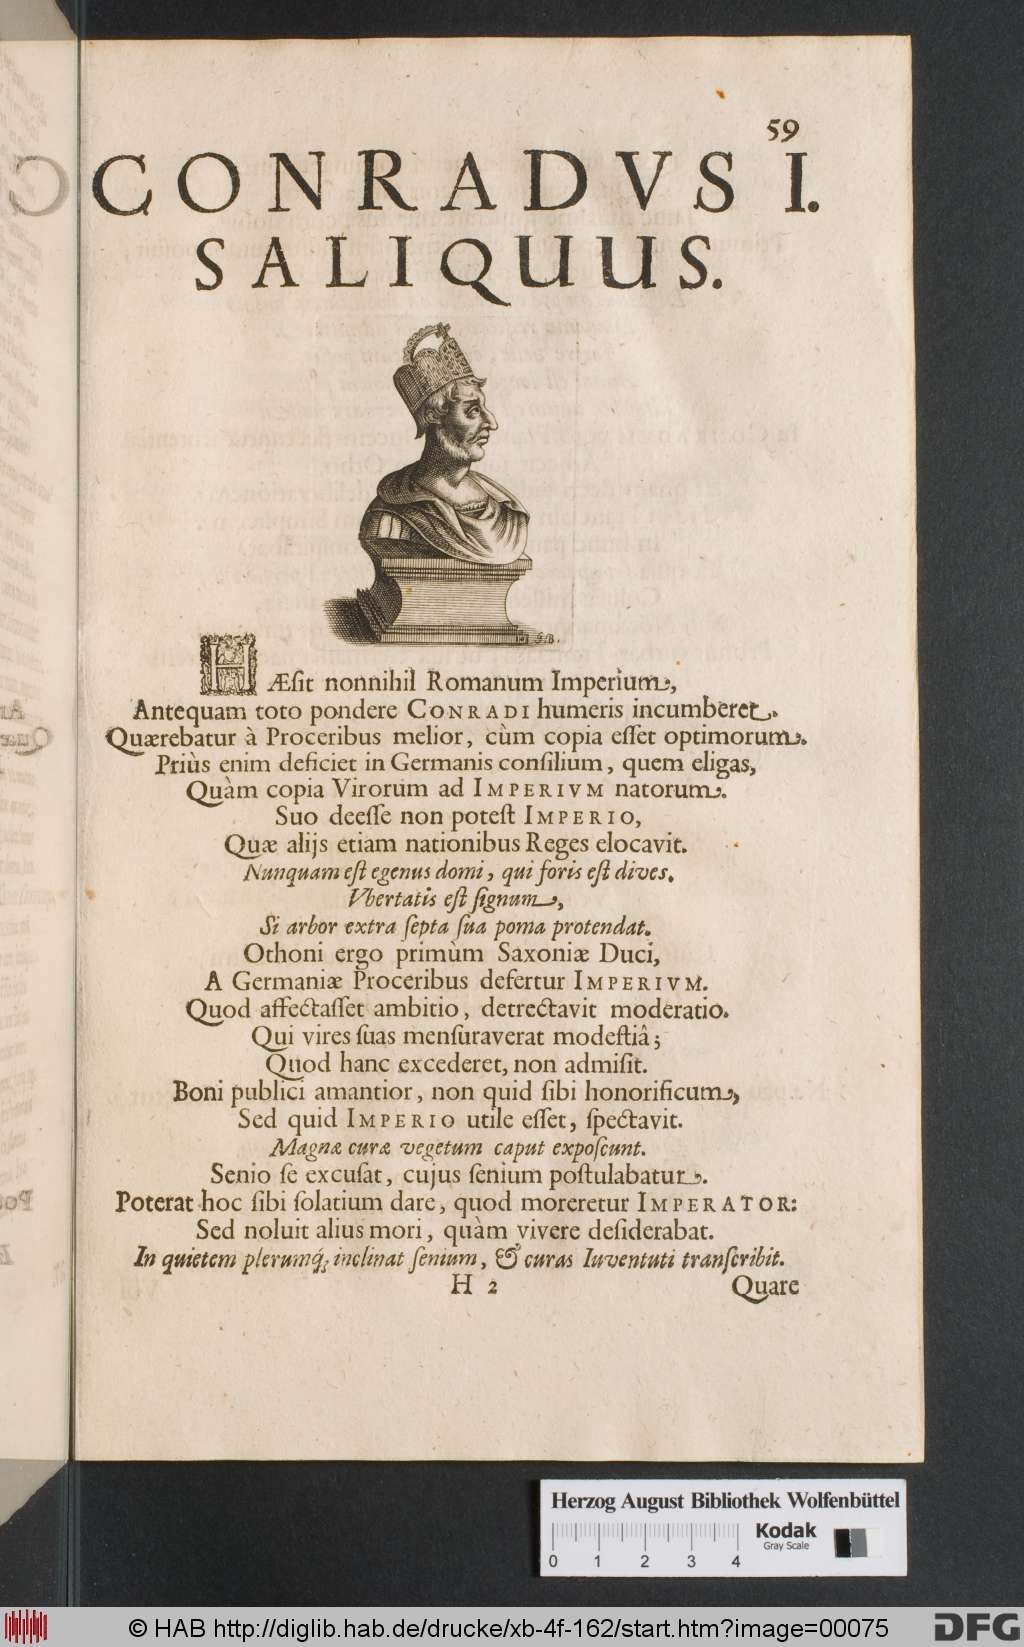 59
CONRADVS I.
SALIQUUS.
HÆsit nonnihil Romanum Imperium,
Antequam toto pondere CONRADI humeris incumberet.
Quærebatur à Proceribus melior, cùm copia esset optimorum.
Priùs enim deficiet in Germanis consilium, quem eligas,
Quàm copia Virorum ad IMPERIVM natorum.
Suo deesse non potest IMPERIO,
Quæ alijs etiam nationibus Reges elocavit.
Nunquam est egenus domi, qui foris est dives.
Vbertatis est signum,
Si arbor extra septa sua poma protendat.
Othoni ergo primùm Saxoniæ Duci,
A Germaniæ Proceribus defertur IMPERIVM.
Quod affectasset ambitio, detrectavit moderatio.
Qui vires suas mensuraverat modestiâ;
Quod hanc excederet, non admisit.
Boni publici amantior, non quid sibi honorificum,
Sed quid IMPERIO utile esset, spectavit.
Magnæ curæ vegetum caput exposcunt.
Senio se excusat, cujus senium postulabatur.
Poterat hoc sibi solatium dare, quod moreretur IMPERATOR:
Sed noluit alius mori, quàm vivere desiderabat.
In quietem plerumq; inclinat senium, & curas Iuventuti transcribit.
H 2 Quare
Herzog August Bibliothek Wolfenbüttel
0 1 2 3 4
Kodak
Gray Scale
© HAB http://diglib.hab.de/drucke/xb-4f-162/start.htm?image=00075
DFG